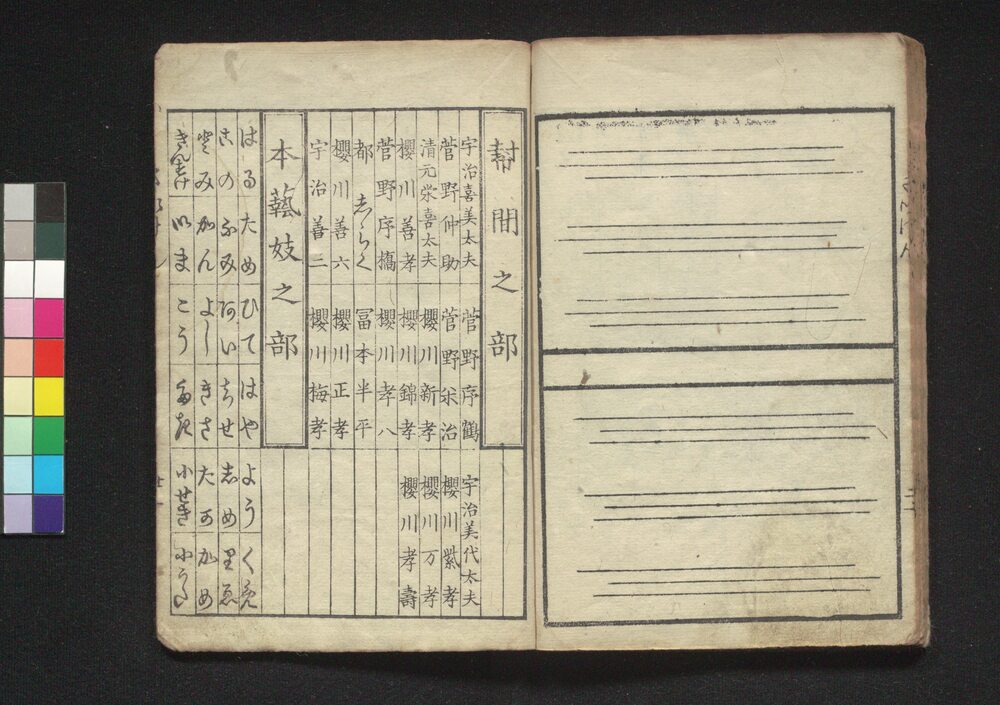 幇間之部
宇治喜美太夫 菅野序鶴 宇治美代太夫
菅野仲助 菅野米治 櫻川紫孝
清元栄喜太夫 櫻川新孝 櫻川万孝
櫻川善孝 櫻川錦孝 櫻川孝壽
菅野序橘 櫻川孝八
都 冨本半平
櫻川善六 櫻川正孝
宇治善二 櫻川梅孝
本藝妓之部
はる ため ひて はや よう
この ふみ あい ちせ しめ
とみ かん よし きさ たか かめ
きんすけ いま こう 小せき